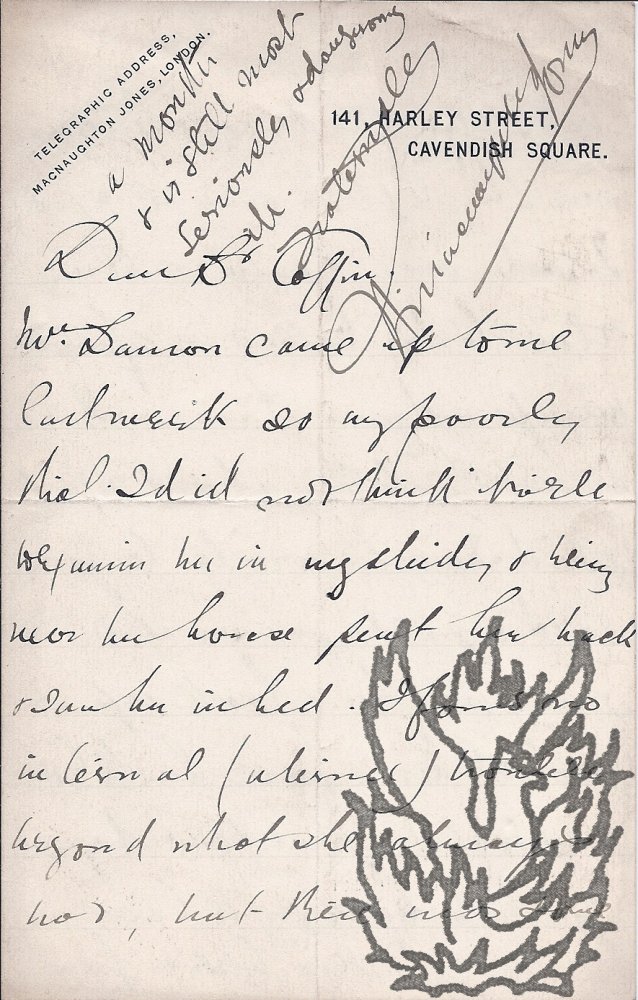 TELEGRAPHIC ADDRESS,
MACNAUGHTON JONES, LONDON.
141, HARLEY STREET,
CAVENDISH SQUARE.
a month
& is still most
seriously & dangerously
ill.
Fraternally
Dear Dr Coffin.
came up to me
last week so poorly
that I did not think
her in my study & being
near her house sent her back
& saw her in bed. I found no
internal (uterine) trouble
beyond what she always
had, but there was some